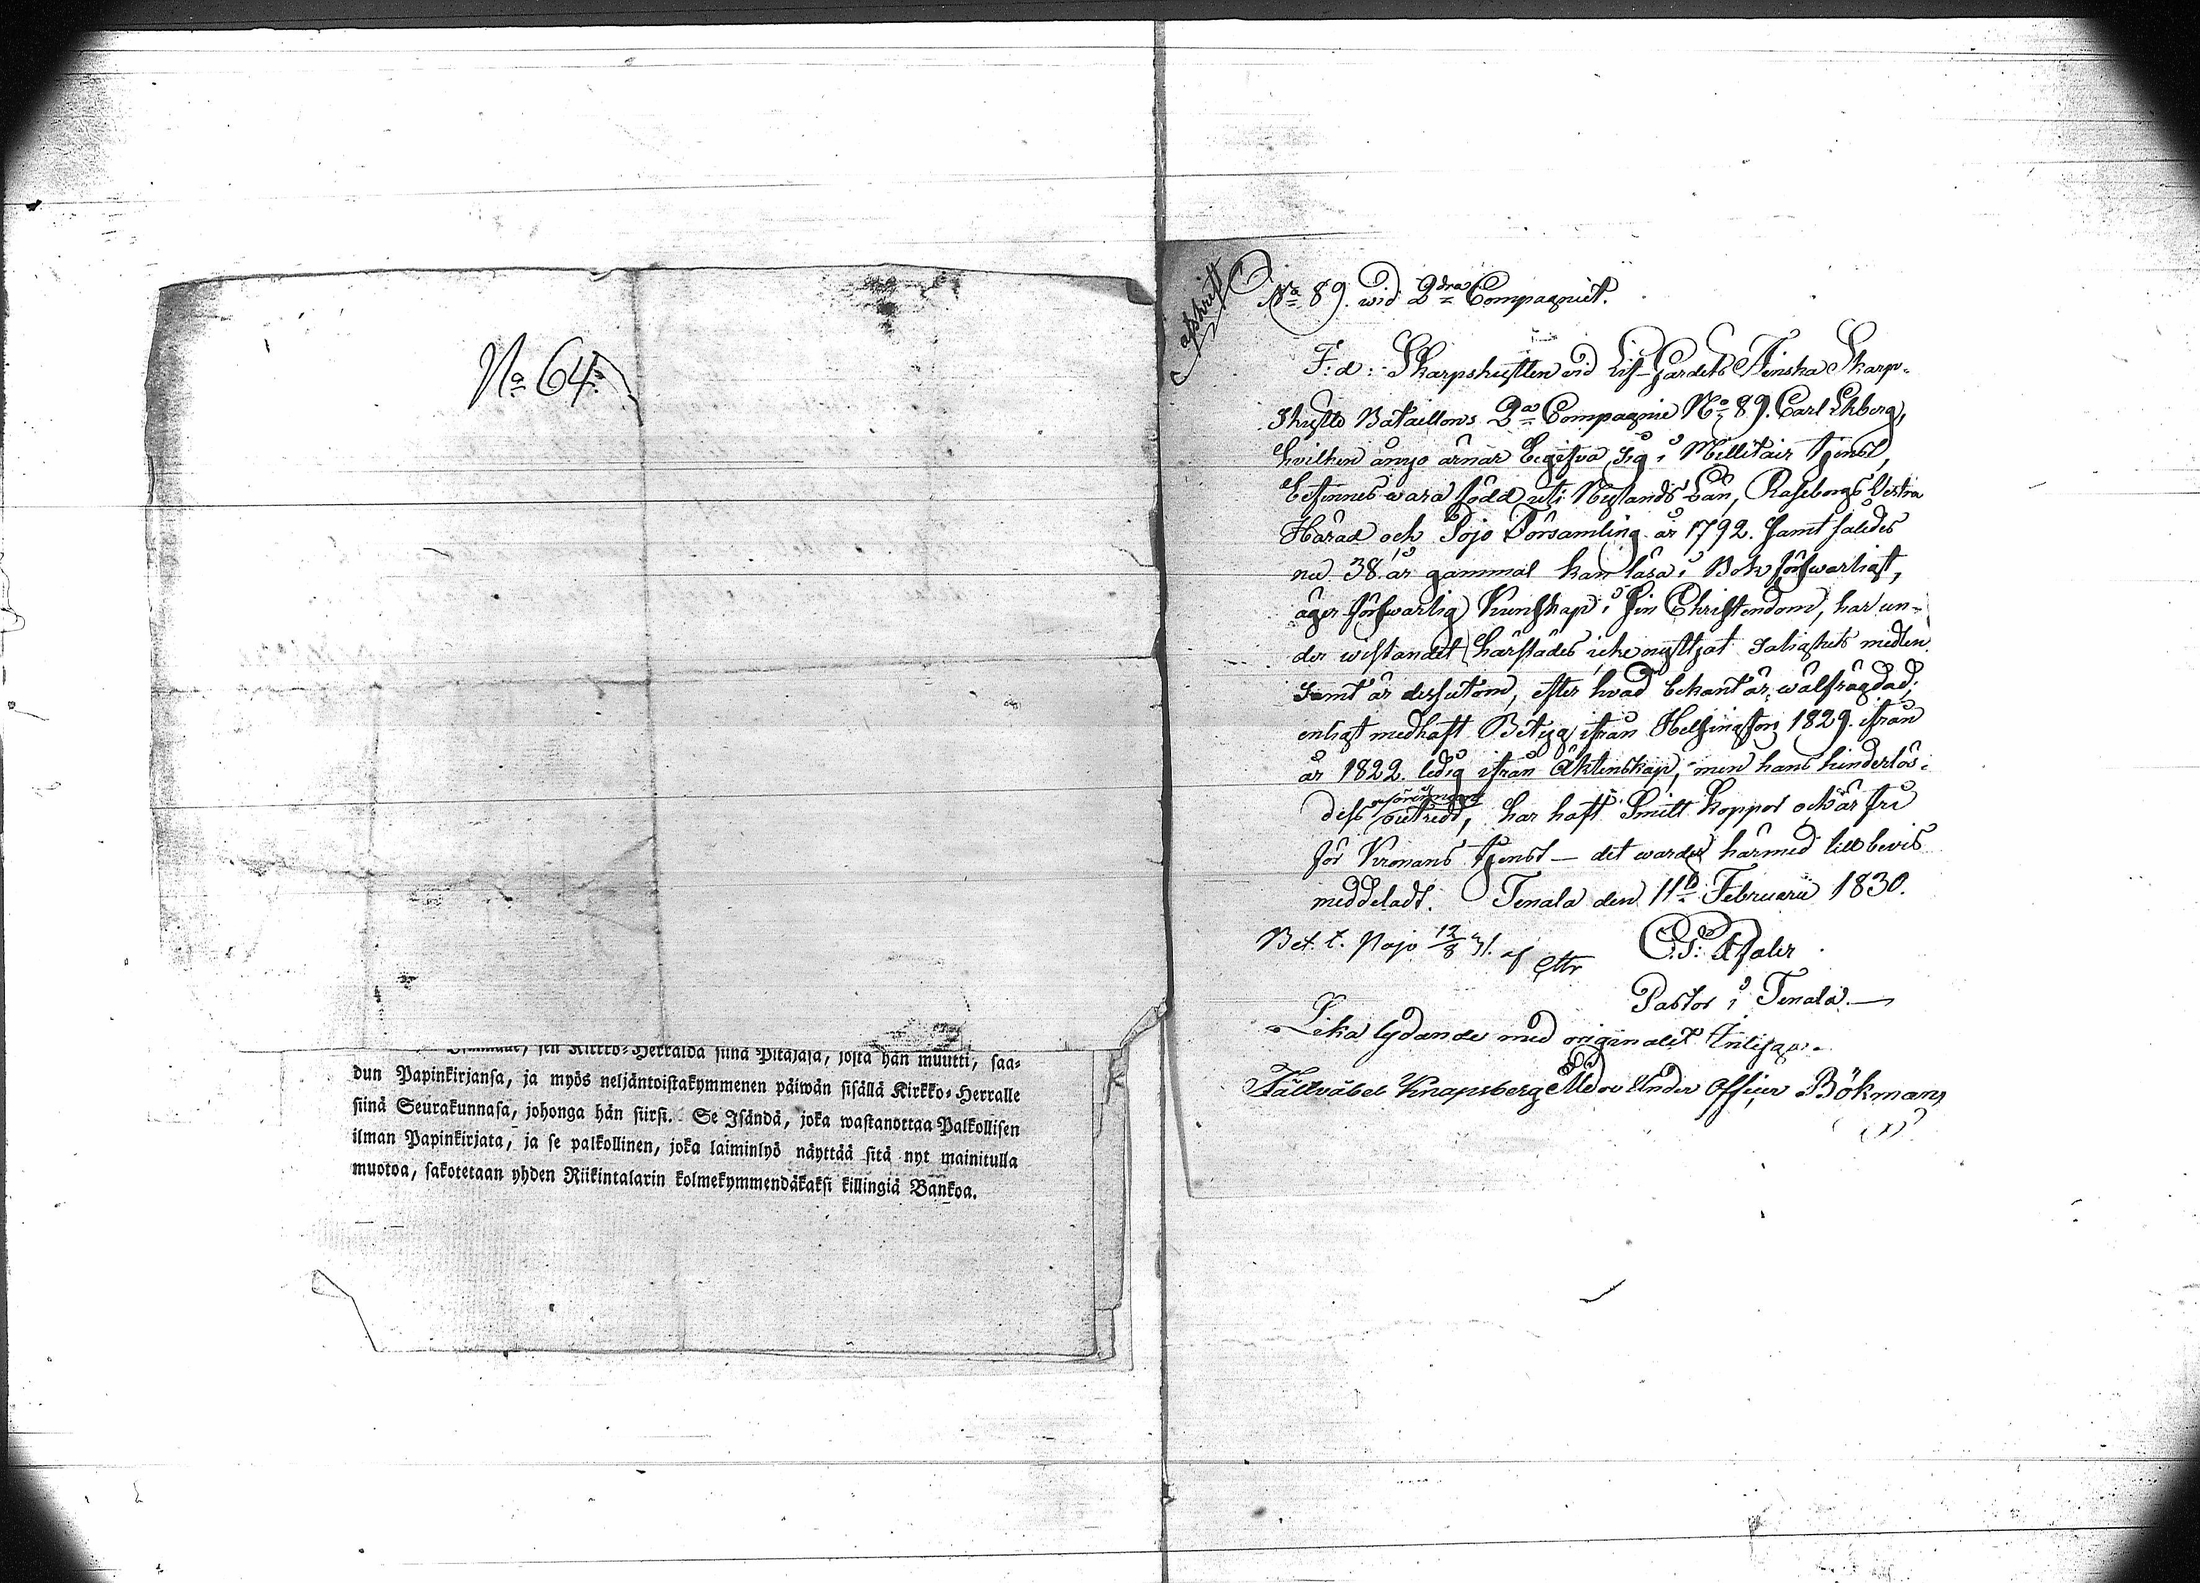 No 64.
sen Kirkko-Herralda siinä Pitäjäsä, josta hän muutti, saa-
dun Papinkirjansa, ja myös neljäntoistakymmenen päiwän sisällä Kirkko-Herralle
siinä Seurakunnasa, johonga hän siirsi. Se Isändä, joka wastanottaa Palkollisen
ilman Papinkirjata, ja se palkollinen, joka laiminlyö näyttää sitä nyt mainitulla
muotoa, sakotetaan yhden Riikintalarin kolmekymmendäkaksi killingiä Bankoa.
afskrift
No 89. wid 2dra Compagniet.
F:d: Skarpskytten vid Lif-Gardets Finska Skarp-
skytte Bataillons 2a Compagnie No 89. Carl Ekberg,
hvilken ånyo ärnar begifva sig i Millitair tjenst,
befinnes wara född uti Nylands Län, Raseborgs Vestra
Härad och Pojo Församling år 1792. samt således
nu 38 år gammal kan läsa i Bok försvarligt,
äger försvarlig Kunskap i sin Christendom, har un-
der wistandet härstädes icke nyttjat Salighets medlen
samt är dessutom, efter hvad bekant är, wälfrägdad;
enligt medhaft Betyg ifrån Helsingfors 1829. ifrån
år 1822. ledig ifrån Äktenskap, men hans hinderlös-
dess har haft Smitt koppor och är fri
för Kronans tjenst — det warder härmed till bevis
meddeladt. Tenala den 11te Februarii 1830.
Bet. t. Pojo 12/8 31. af
Pastor i Tenala.
Lika lydande med originalet intyga:
Fältväbel Knapsberg Under Officer Bökman